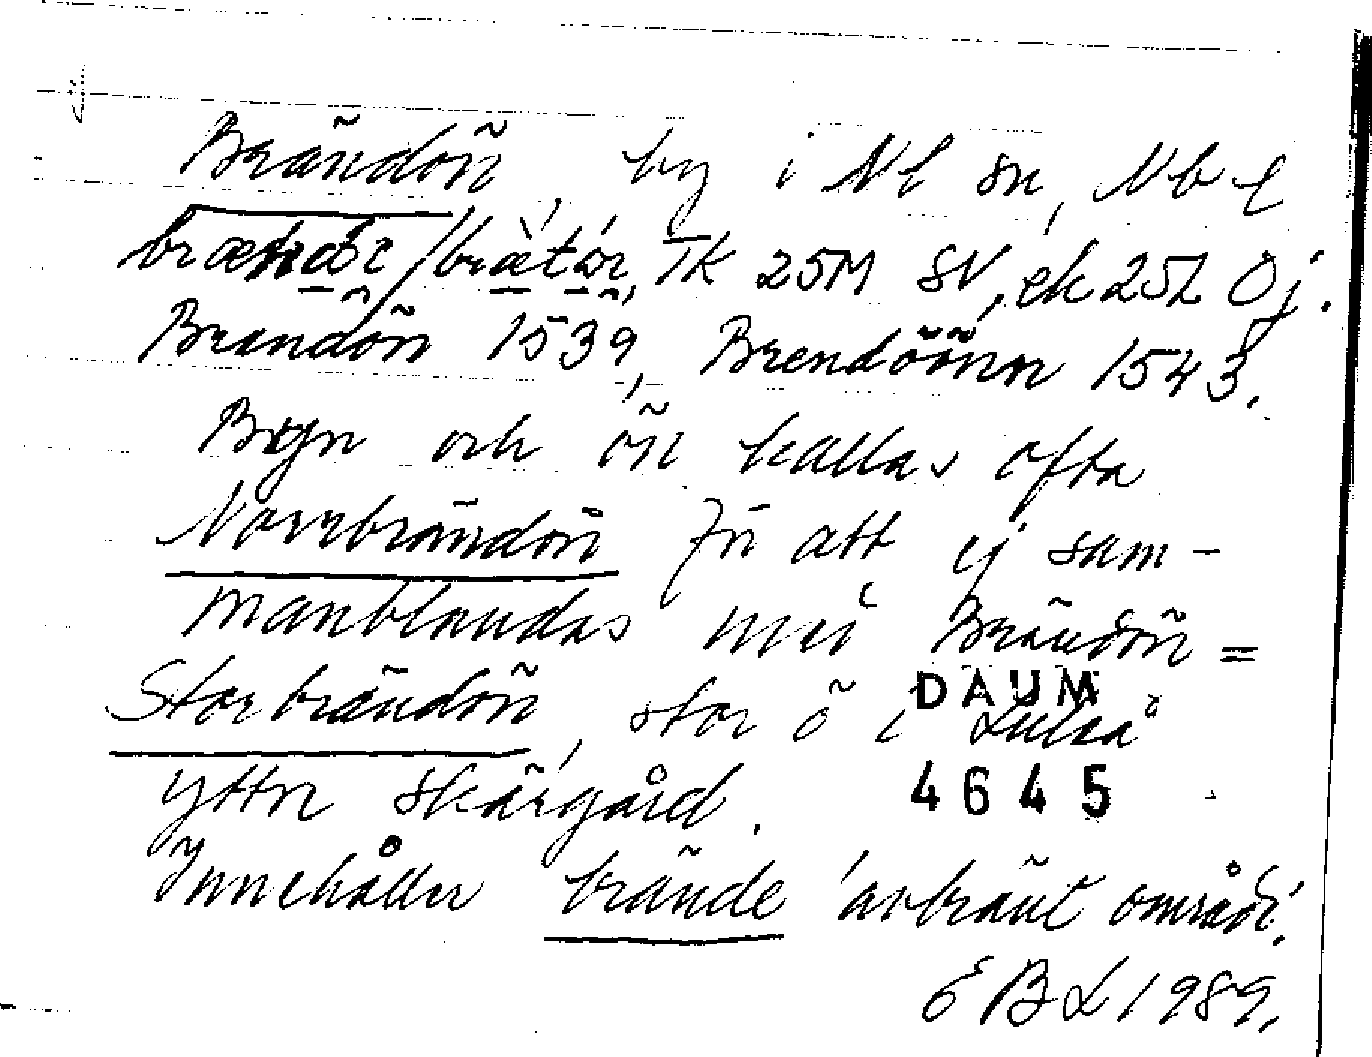 Brändön, by i Nl sn, Nb l
TK 25M SV, ek 25L 0j.
Brandön 1539, Brendöönn 1543.
Byn och ön kallas ofta
Norrbrändön för att ej sam-
manblandas med Brändön =
Storbrändön, stor ö i Luleå
DAUM
yttre skärgård.
4645
Innehåller brände 'avbränt område'.
EBL 1989.